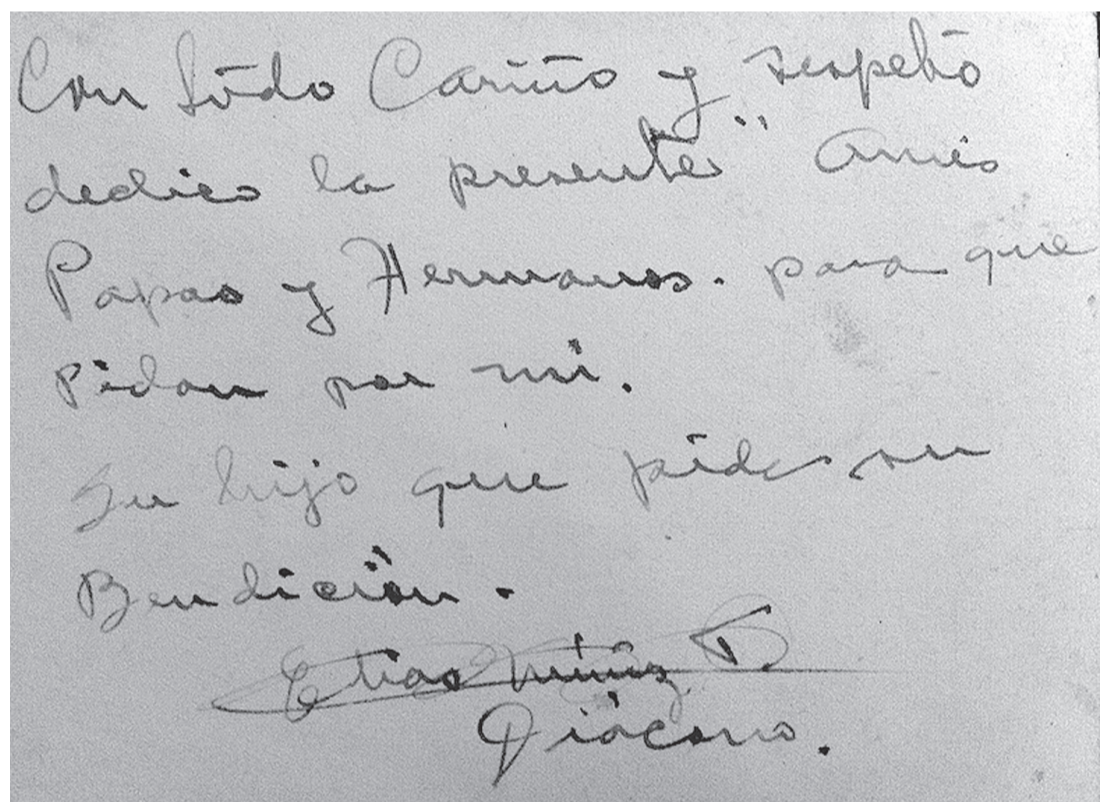 Con todo Cariño y respeto
dedico la presente" Amis
Papas y Hermanos. para que
Pidan por mi.
Su hijo que pide su
Bendición.
Muñoz
Diácono.